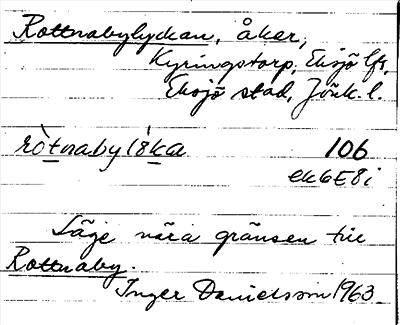 Rottnabylyckan, åker,
Kyringstorp, Eksjö lfs,
Eksjö stad, Jönk. l.
ròtnabylýka 106
ek6E8i
Läge nära gränsen till
Rottnaby.
Inger Danielsson 1963